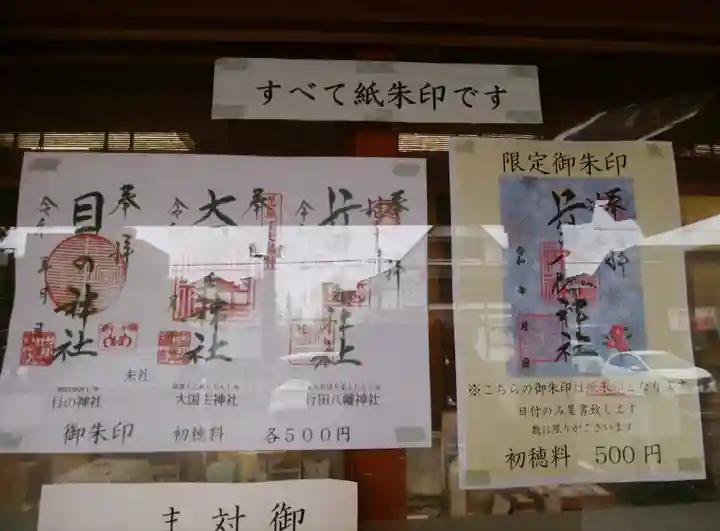 すべて紙朱印です
奉拝
目の神社
令和 年 月 日
奉拝
大国主神社
令和
奉拝
行田八幡神社
令和
末社
目の神社
大国主神社
行田八幡神社
御朱印 初穂料 各500円
限定御朱印
奉拝
行田八幡神社
令和 年 月 日
※こちらの御朱印は紙朱印となります
日付のみ墨書致します
数に限りがございます
初穂料 500円
対御